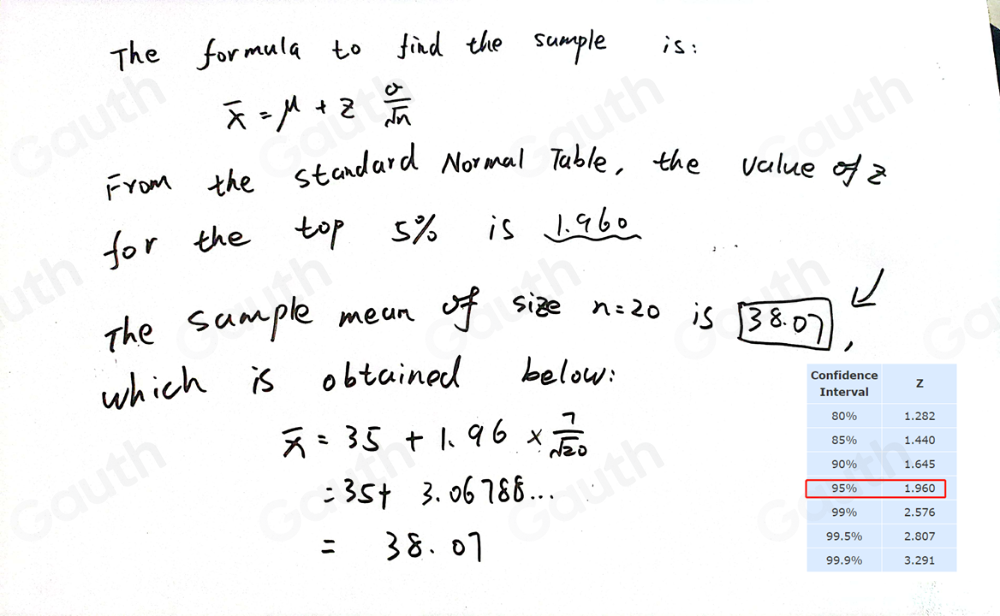 The formula to find the sample is:
x̄ = μ + z σ/√n
From the standard Normal Table, the value of z
for the top 5% is 1.960
The sample mean of size n=20 is 38.07,
which is obtained below:
x̄ = 35 + 1.96 × 7/√20
= 35+ 3.06788...
= 38.07
Confidence Interval Z
80% 1.282
85% 1.440
90% 1.645
95% 1.960
99% 2.576
99.5% 2.807
99.9% 3.291
Gauth